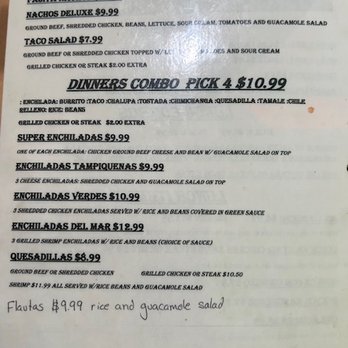 NACHOS DELUXE $9.99
GROUND BEEF, SHREDDED CHICKEN, BEANS, LETTUCE, SOUR CREAM, TOMATOES AND GUACAMOLE SALAD
TACO SALAD $7.99
GROUND BEEF OR SHREDDED CHICKEN TOPPED W/ AND SOUR CREAM
GRILLED CHICKEN OR STEAK $2.00 EXTRA
DINNERS COMBO PICK 4 $10.99
: ENCHILADA: BURRITO :TACO :CHALUPA :TOSTADA :CHIMKHANGA :QUESADILLA :TAMALE :CHILE
RELLENO: RICE: BEANS
GRILLED CHICKEN OR STEAK $2.00 EXTRA
SUPER ENCHILADAS $9.99
ONE OF EACH ENCHILADA: CHICKEN GROUND BEEF CHEESE AND BEAN W/ GUACAMOLE SALAD ON TOP
ENCHILADAS TAMPIQUENAS $9.99
3 CHEESE ENCHILADAS: SHREDDED CHICKEN AND GUACAMOLE SALAD ON TOP
ENCHILADAS VERDES $10.99
3 SHREDDED CHICKEN ENCHILADAS SERVED W/ RICE AND BEANS COVERED IN GREEN SAUCE
ENCHILADAS DEL MAR $12.99
3 GRILLED SHRIMP ENCHILADAS W/ RICE AND BEANS (CHOICE OF SAUCE)
QUESADILLAS $8.99
GROUND BEEF OR SHREDDED CHICKEN GRILLED CHICKEN OR STEAK $10.50
SHRIMP $11.99 ALL SERVED W/RICE BEANS AND GUACAMOLE SALAD
Flautas $9.99 rice and guacamole salad